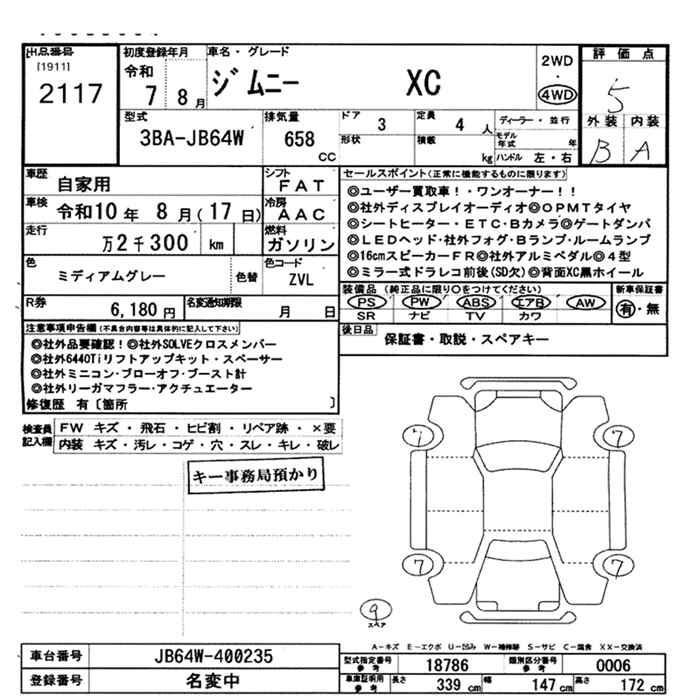 出品番号
[1911]
2117
初度登録年月
令和
7 8月
車名・グレード
ジムニー XC
2WD
4WD
評価点
5
外装 内装
B A
型式
3BA-JB64W
排気量
658
CC
ドア 3
形状
定員 4 人
積載 kg
ディーラー・並行
モデル年式 年
ハンドル 左・右
車歴
自家用
シフト
FAT
車検 令和10年 8月(17日)
冷房
AAC
走行
万2千300 km
燃料
ガソリン
色
ミディアムグレー
色替
色コード
ZVL
R券
6,180円
名変通知期限
月 日
セールスポイント(正常に機能するものに限ります)
◎ユーザー買取車!・ワンオーナー!!
◎社外ディスプレイオーディオ◎OPMTタイヤ
◎シートヒーター・ETC・Bカメラ◎ゲートダンパ
◎LEDヘッド・社外フォグ・Bランプ・ルームランプ
◎16cmスピーカーFR◎社外アルミペダル◎4型
◎ミラー式ドラレコ前後(SD欠)◎背面XC黒ホイール
装備品(純正品に限り○をつけてください)
PS PW ABS エアB AW
SR ナビ TV カワ
新車保証書
有・無
後日品
保証書・取説・スペアキー
注意事項申告欄(不具合内容等は具体的に記入して下さい)
◎社外品要確認!◎社外SOLVEクロスメンバー
◎社外6440Tiリフトアップキット・スペーサー
◎社外ミニコン・ブローオフ・ブースト計
◎社外リーガマフラー・アクチュエーター
修復歴 有〔箇所 〕
検査員記入欄
FW キズ・飛石・ヒビ割・リペア跡・×要
内装 キズ・汚レ・コゲ・穴・スレ・キレ・破レ
キー事務局預かり
7 7
7 7
9
スペア
A-キズ E-エクボ U-凹み W-補修跡 S-サビ C-腐食 XX-交換済
車台番号 JB64W-400235
登録番号 名変中
型式指定番号参考 18786
類別区分番号参考 0006
車庫証明用参考 長さ 339cm 幅 147cm 高さ 172cm